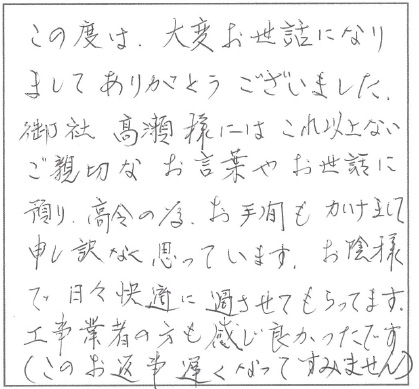 この度は、大変お世話になり
ましてありがとうございました。
御社 高瀬様にはこれ以上ない
ご親切なお言葉やお世話に
預り、高令の為、お手間もかけまして
申し訳なく思っています。お陰様
で日々快適に過させてもらってます。
工事業者の方も感じ良かったです
(このお返事遅くなってすみません)